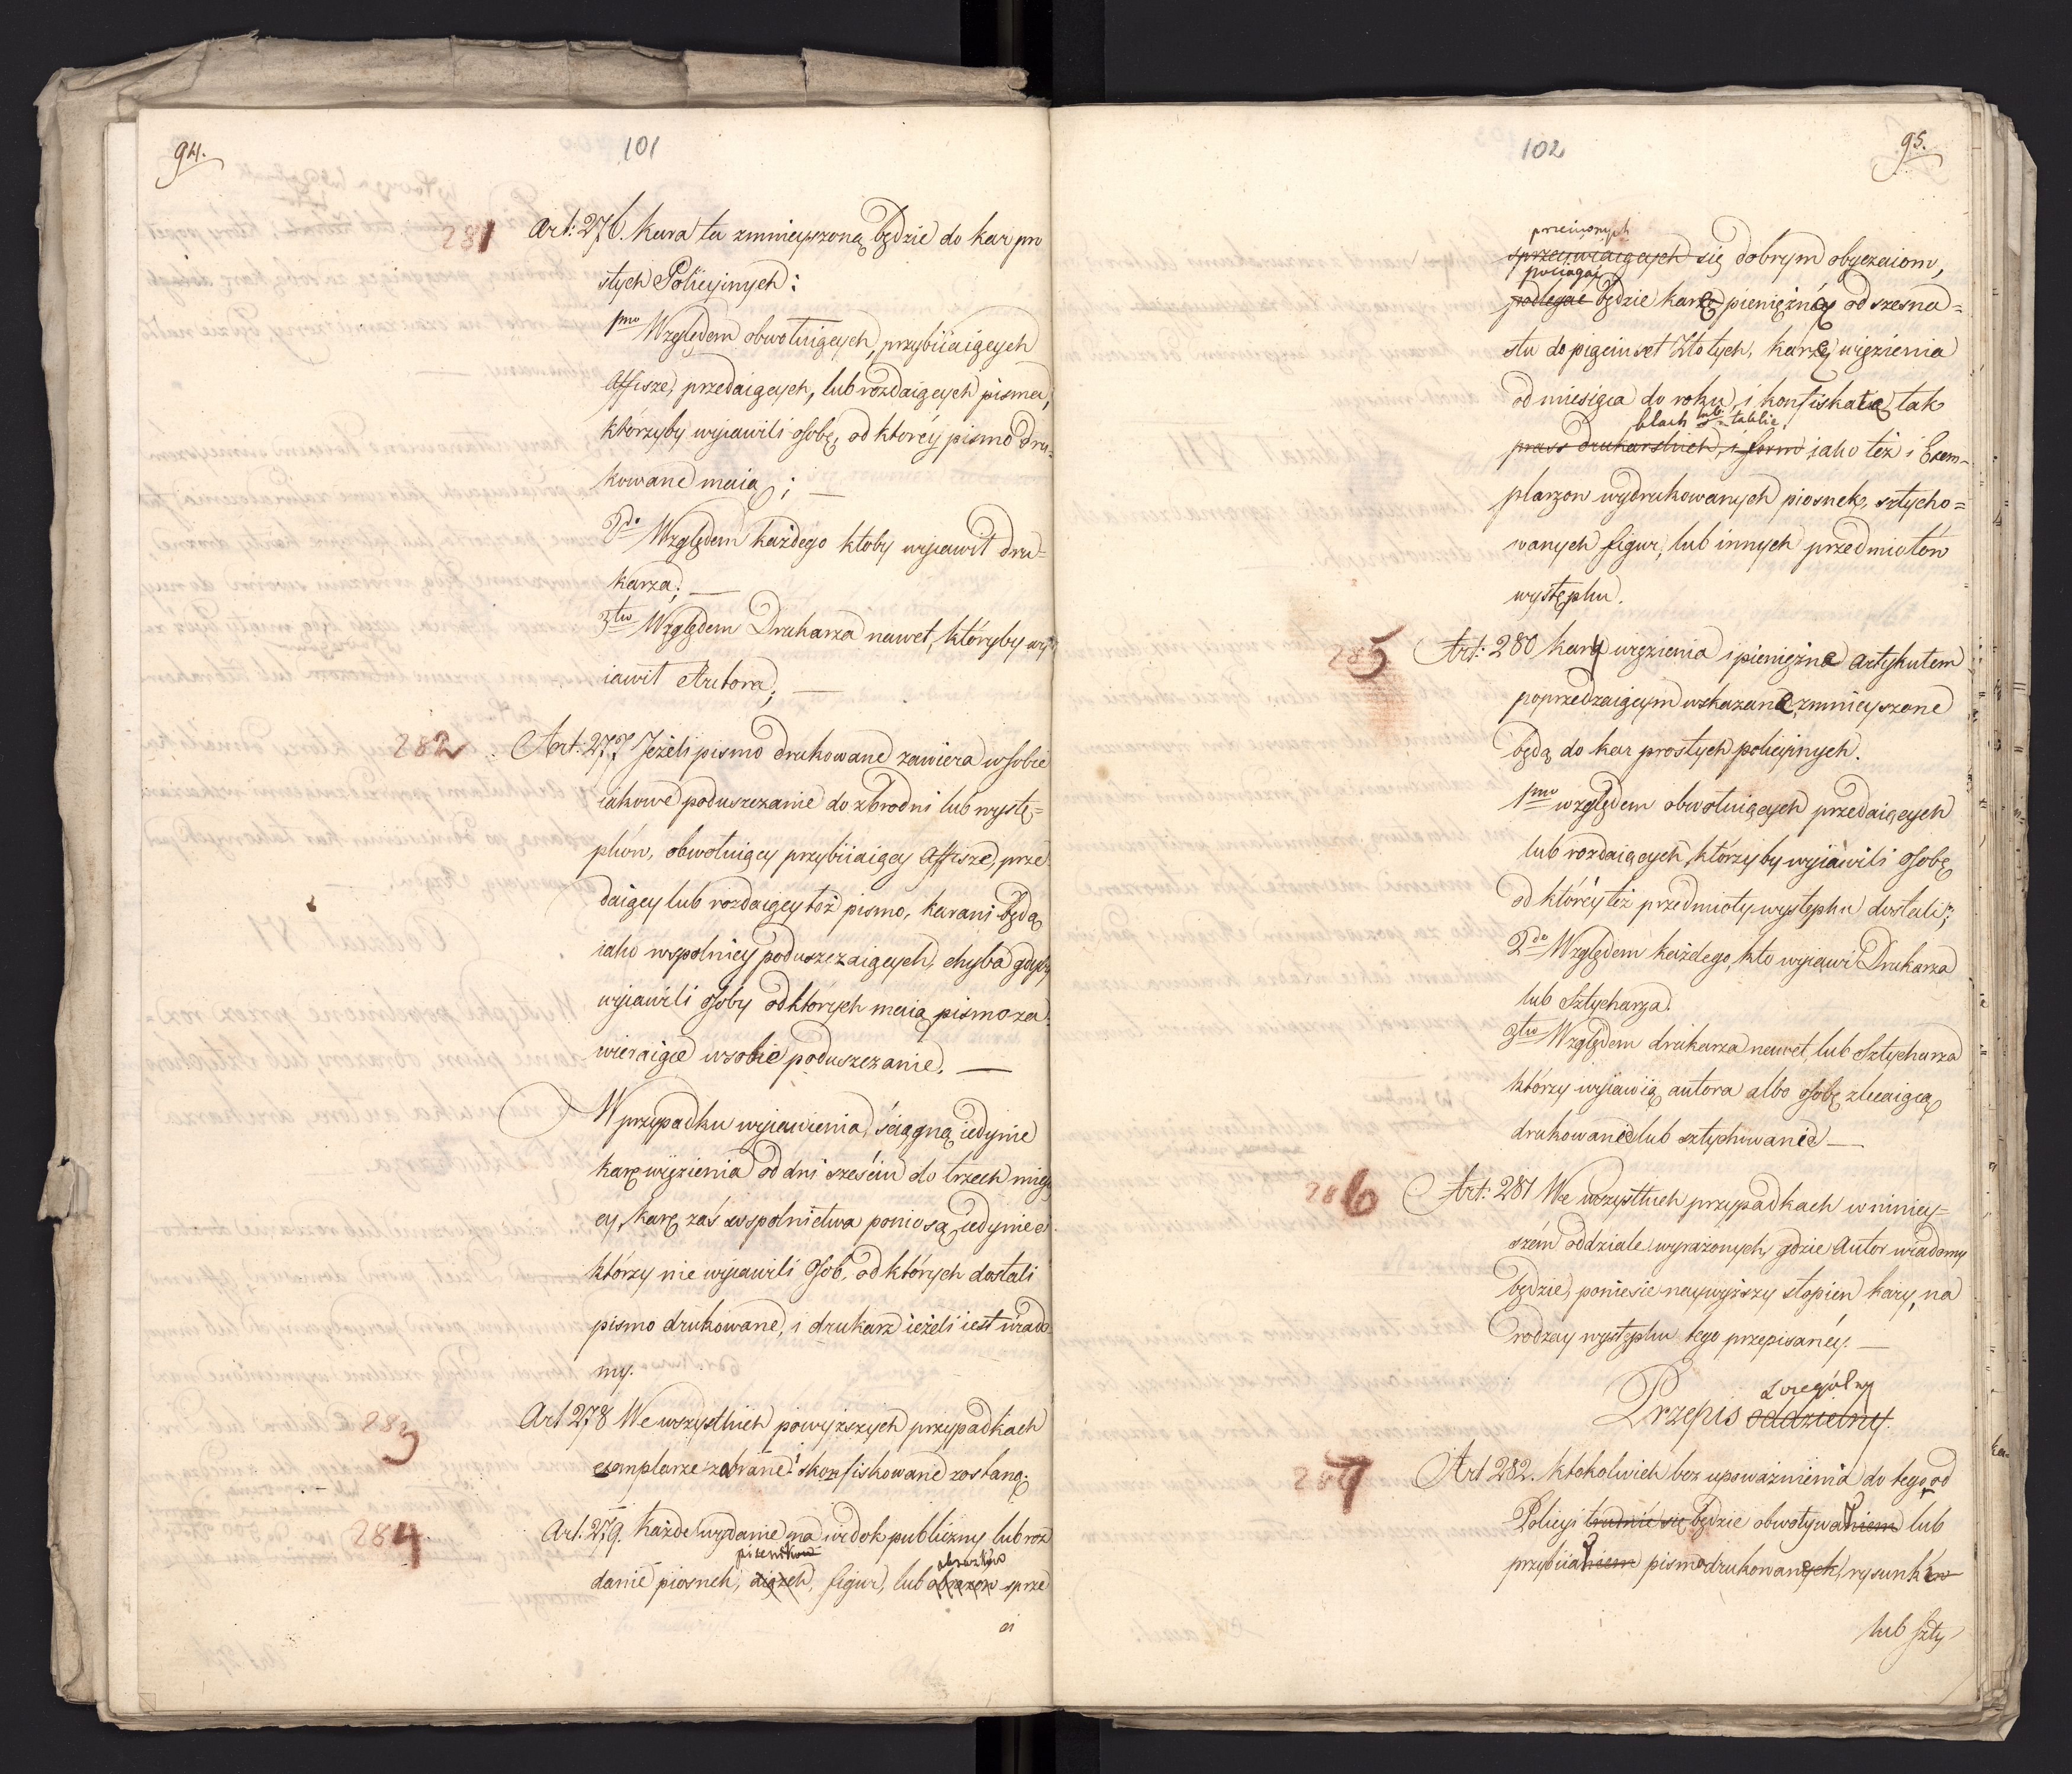 94.
101
281 Art: 276. Kara ta zmnieyszoną będzie do kar pro
stych Policyinych:
1mo Względem obwołuiących, przybiiaiących
Affisze, przedaiących, lub rozdaiących pisma,
którzyby wyiawili osobę, od któréy pismo dru-
kowane maią; —
2do Względem każdego ktoby wyiawił dru-
karza; —
3tio Względem Drukarza nawet, któryby wy-
iawił Autora; —
282 Art: 277 Jeżeli pismo drukowane zawiera w sobie
iakowe poduszczanie do zbrodni lub wystę-
pków, obwołuiący przybiiaiący Affisze, prze
daiący lub rozdaiący toż pismo, karani będą
iako wspolnicy poduszczaiących, chyba gdyby
wyiawili osoby od których maią pismo za-
wieraiące w sobie poduszczanie. —
W przypadku wyiawienia, ściągną iedynie
karę więzienia od dni sześciu do trzech miesię
cy, karę zaś wspolnictwa poniosą iedynie ci
którzy nie wyiawili osob, od których dostali
pismo drukowane, i drukarz ieżeli iest wiado-
my.
283 Art 278 We wszystkich powyższych przypadkach
exemplarze zabrane i skonfiskowane zostaną.
284 Art. 279. Każde wydanie na widok publiczny lub roz
pisemków obrazków
danie piosnek, xiążek, figur, lub obrazow sprze
ci
102
95.
przeciwnych
sprzeciwiaiących się dobrym obyczaiom,
pociągać
podlegać będzie karę pieniężną od szesna-
stu do pięciuset Złotych, karę więzienia
od miesiąca do roku, i konfiskatę tak
blach lub tablic
prass drukarskich, i form iako téż i Exem-
plarzow wydrukowanych piosnek, sztycho-
wanych figur, lub innych przedmiotów
występku.
285 Art: 280 Kary więzienia i pieniężne artykułem
poprzedzaiącym wskazane, zmnieyszone
będą do kar prostych policyinych.
1mo względem obwołuiących przedaiących
lub rozdaiących, którzyby wyiawili osobę
od któréy téż przedmioty występku dostali;
2do Względem każdego, kto wyiawi Drukarza
lub Sztycharza.
3tio Względem drukarza nawet, lub Sztycharza
którzy wyiawią autora albo osobę zlecaiącą
drukowanie lub sztychowanie —
286 Art: 281 We wszystkich przypadkach w niniey-
szém oddziale wyrażonych, gdzie Autor wiadomy
będzie, poniesie naywyższy stopień kary, na
rodzay występku tego przepisanéy. —
szczególny
Przepis oddzielny.
287 Art 282. Ktokolwiek bez upoważnienia do tego od
Policyi trudnić się będzie obwoływaniem lub
przybiianiem pism drukowanych, rysunków
lub szty